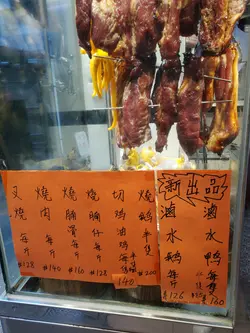 叉燒 每斤 $128
燒肉 每斤 $140
燒腩骨 每斤 $160
燒腩仔 每斤 $140
切鸡 卤鸡 每隻 半隻 140
燒鹅 半隻 $200
新出品
滷水鹅 每斤 $126
滷水鸭 每隻 $160